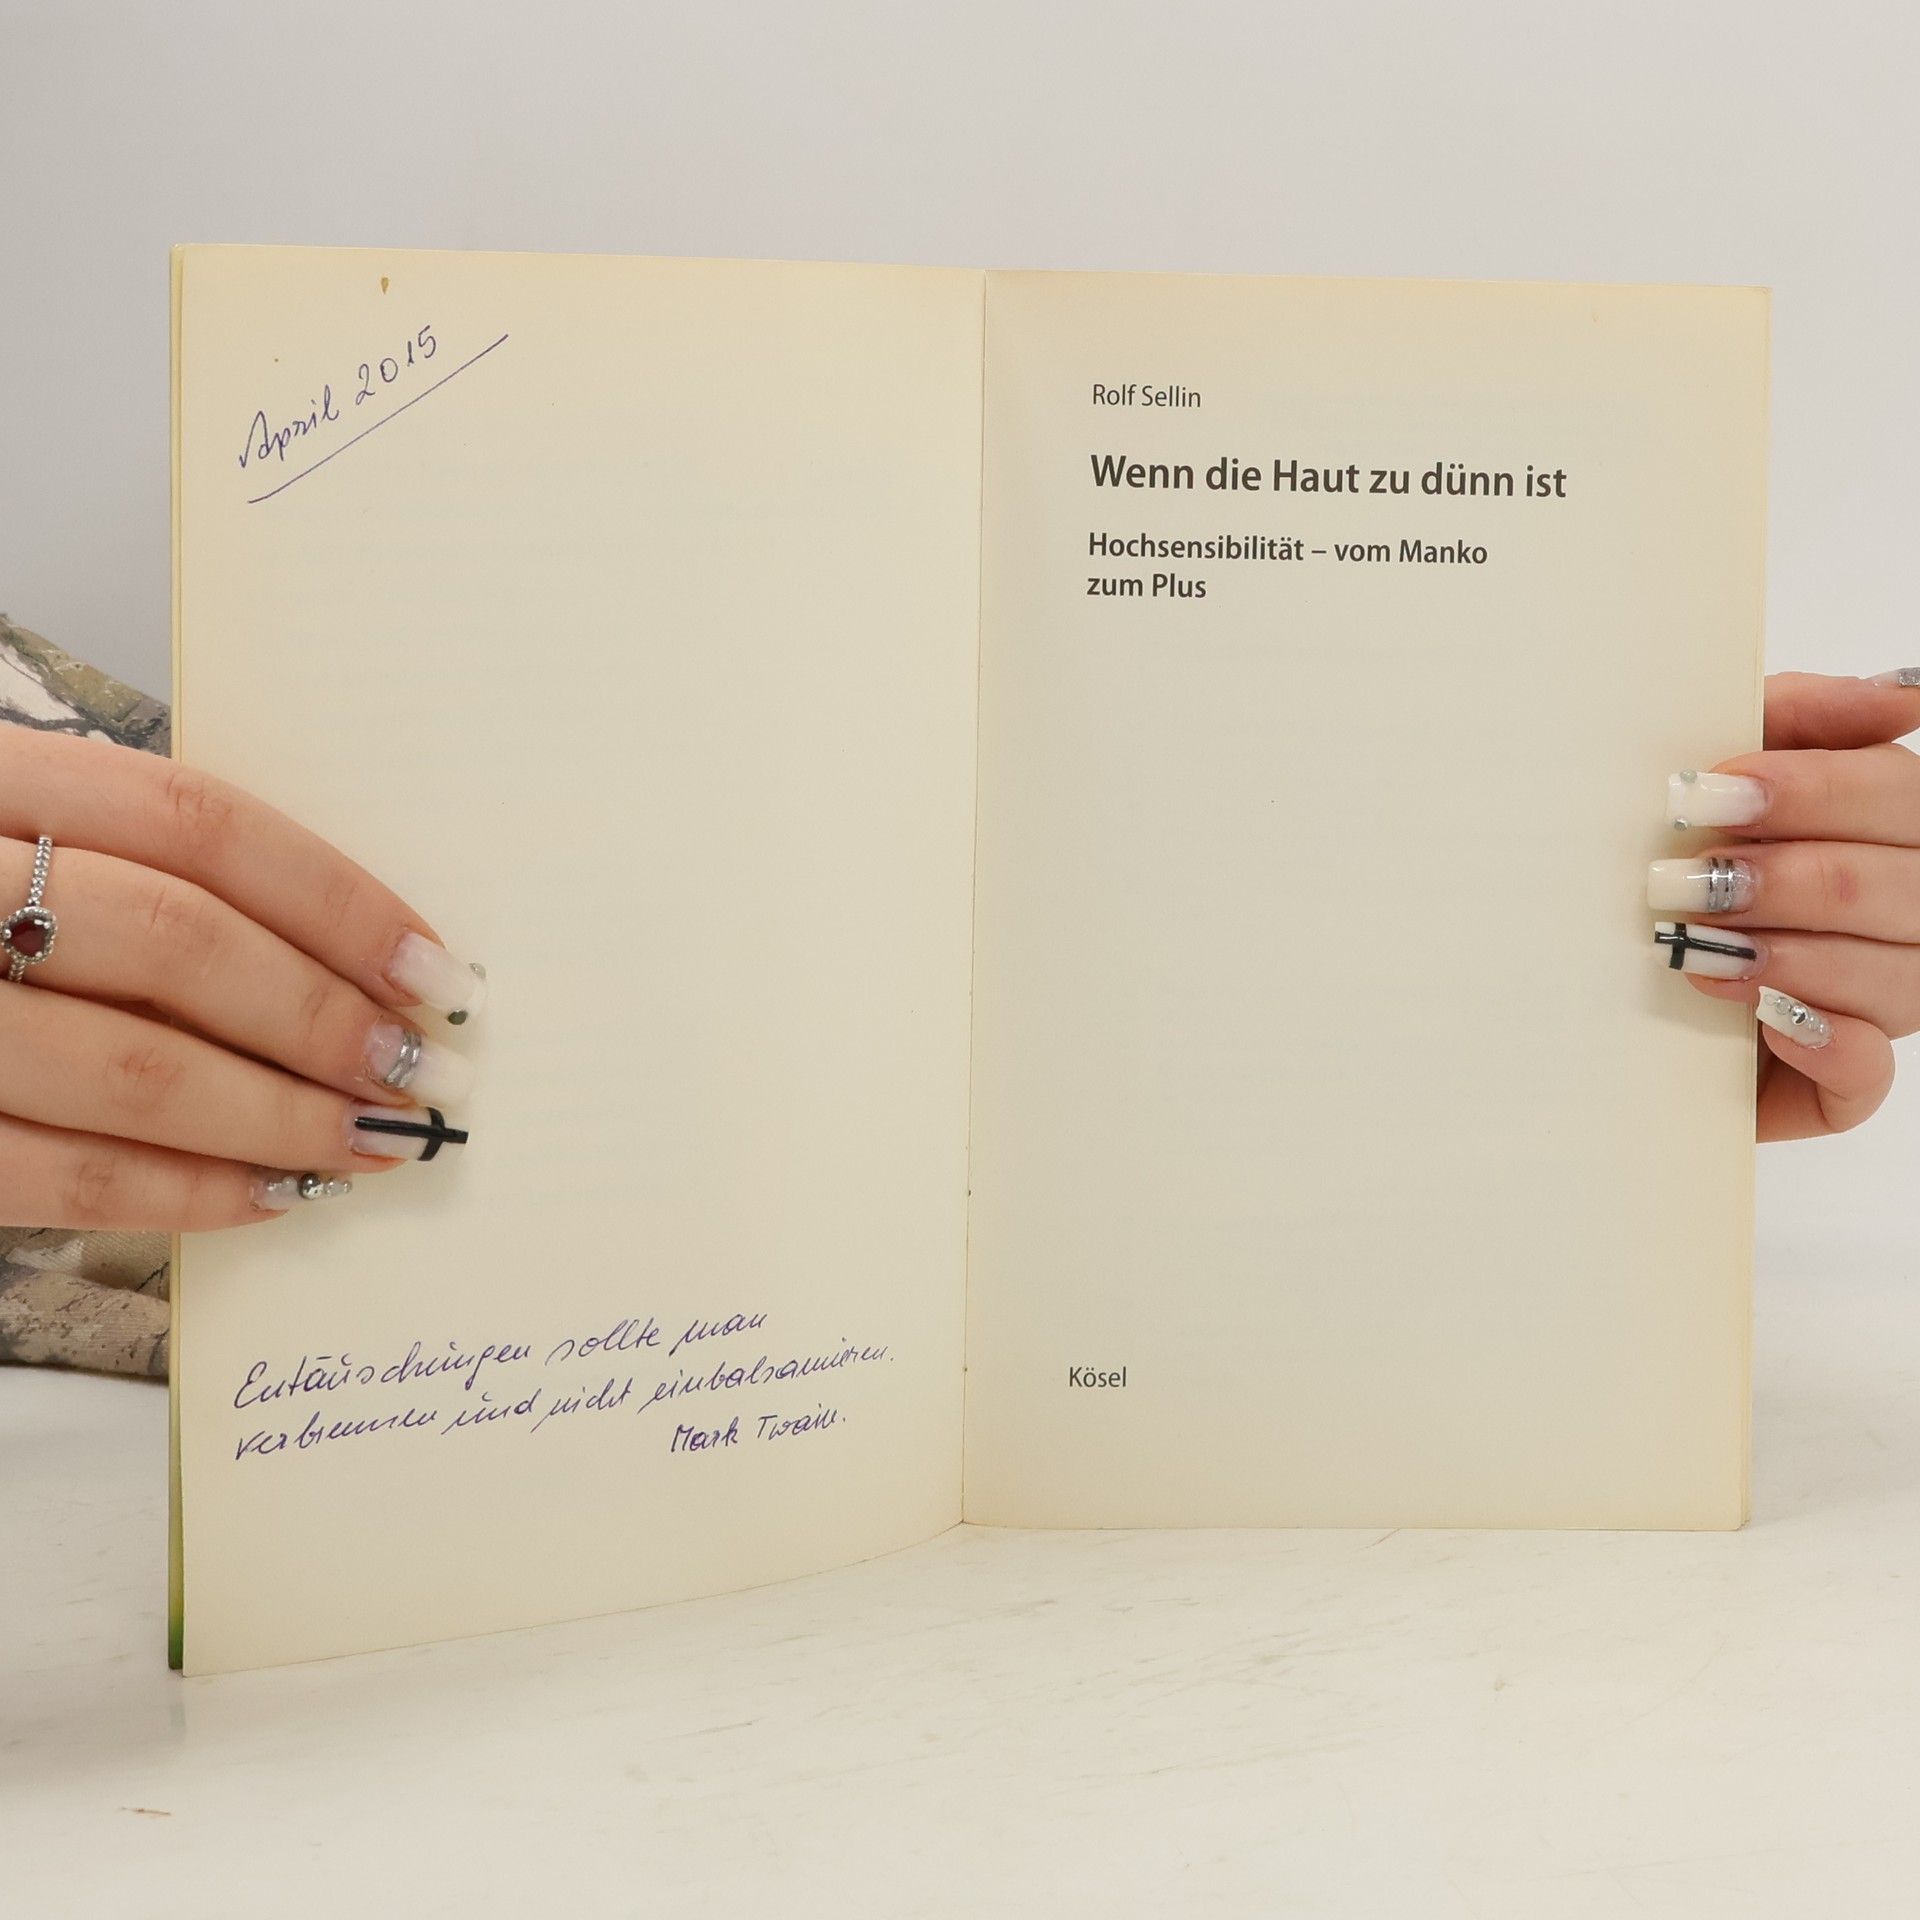 April 2015
Entäuschungen sollte man
verbrennen und nicht einbalsamieren.
Mark Twain.
Rolf Sellin
Wenn die Haut zu dünn ist
Hochsensibilität – vom Manko
zum Plus
Kösel